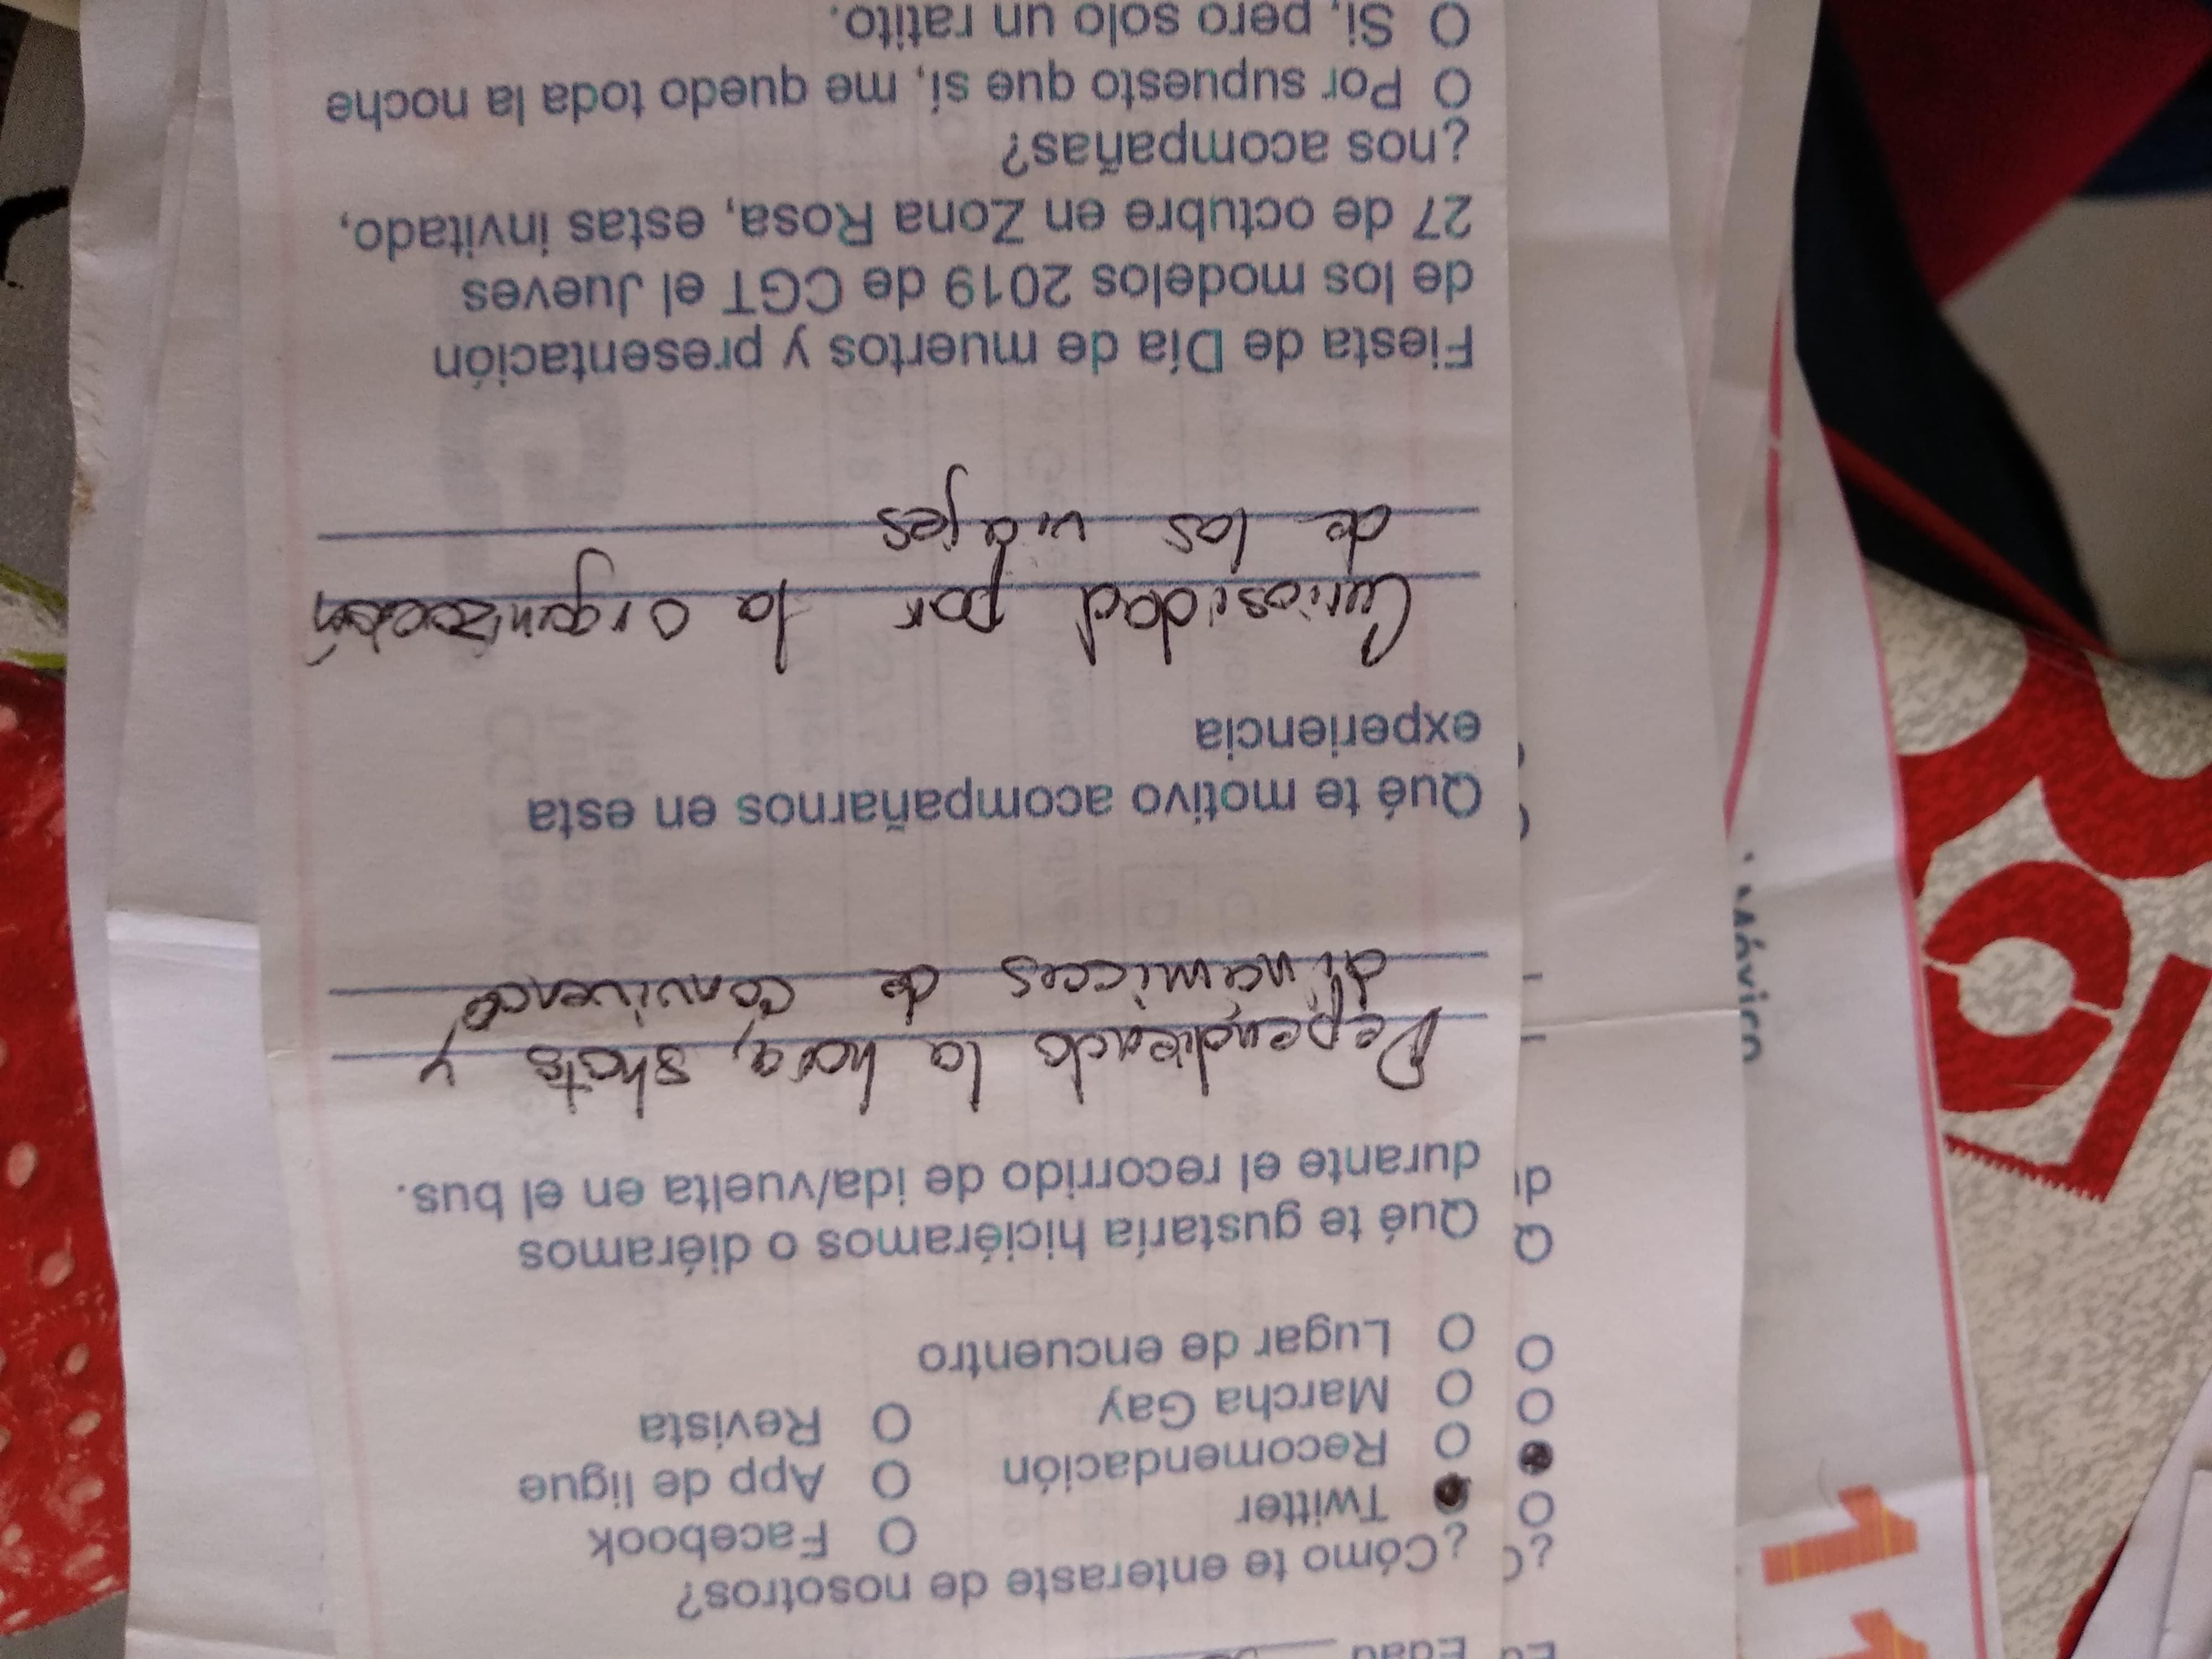 Edad
¿Cómo te enteraste de nosotros?
Twitter Facebook
Recomendación App de ligue
Marcha Gay Revista
Lugar de encuentro
Qué te gustaría hiciéramos o diéramos
durante el recorrido de ida/vuelta en el bus.
Dependiendo la hora, shots y
dinamicas de convivencia
Qué te motivo acompañarnos en esta
experiencia
Curiosidad por la organización
de los viajes
Fiesta de Día de muertos y presentación
de los modelos 2019 de CGT el Jueves
27 de octubre en Zona Rosa, estas invitado,
¿nos acompañas?
Por supuesto que sí, me quedo toda la noche
Si, pero solo un ratito.
México
11